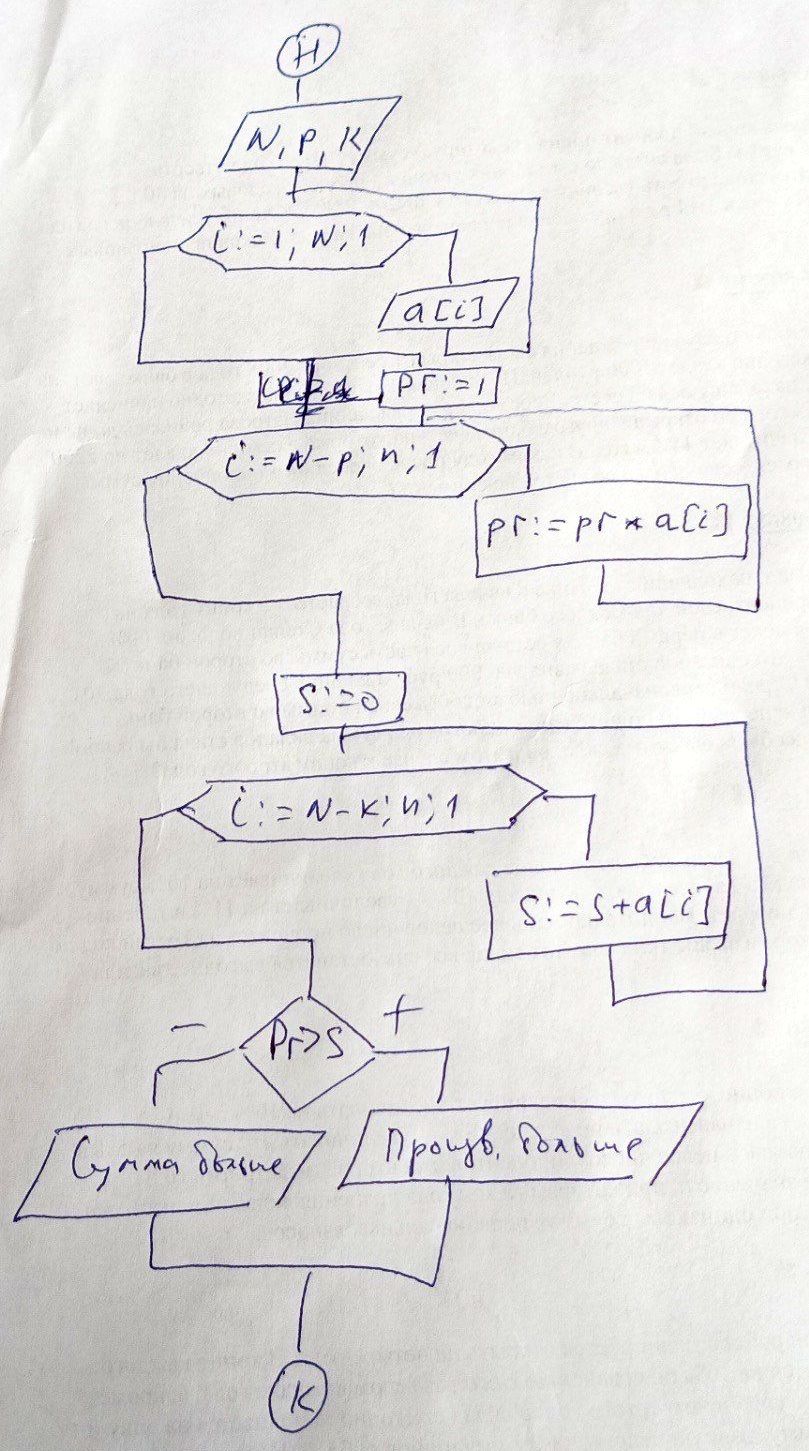 Н
N, P, K
i:=1; N; 1
a[i]
pr:=1
i:=N-p; n; 1
pr:=pr*a[i]
S:=0
i:=N-K; n; 1
S:=S+a[i]
Pr>S
-
+
Сумма больше
Произв. больше
К